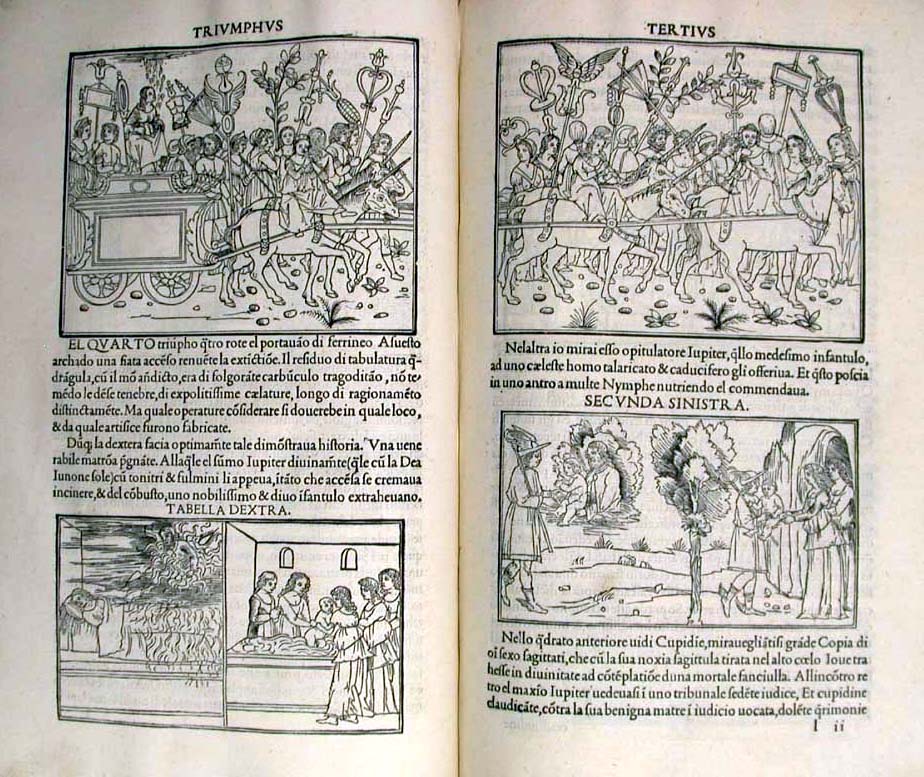 TRIVMPHVS
EL QVARTO triũpho q̃tro rote el portauão di ferrineo Asuesto
archado una fiata accẽso renuẽte la extictiõe. Il residuo di tabulatura q̃-
drãgula, cũ il mõ añdicto, era di folgorãte carbũculo tragoditão, nõ te-
mẽdo le dẽse tenebre, di expolitissime cælature, longo di ragionamẽto
distinctamẽte. Ma quale operature cõsiderare si douerebe in quale loco,
& da quale artifice furono fabricate.
Dũq; la dextera facia optimam̃te tale dimõstraua historia. Vna uene
rabile matrõa p̃gnãte. Allaq̃le el sũmo Iupiter diuinam̃te (q̃le cũ la Dea
Iunone sole) cũ tonitri & fulmini li appeua, itãto che accẽsa se cremaua
incinere, & del cõbusto, uno nobilissimo & diuo ifantulo extraheuano.
TABELLA DEXTRA.
TERTIVS
Nelaltra io mirai esso opitulatore Iupiter, q̃llo medesimo infantulo,
ad uno cæleste homo talaricato & caducifero gli offeriua. Et q̃sto poscia
in uno antro a multe Nymphe nutriendo el commendaua.
SECVNDA SINISTRA.
Nello q̃drato anteriore uidi Cupidie, mirauegliãtisi grãde Copia di
oĩ sexo sagittati, che cũ la sua noxia sagittula tirata nel alto cœlo Ioue tra
hesse in diuinitate ad cõtẽplatiõe duna mortale fanciulla. Allincõtro re
tro el maxío Iupiter uedeuasi ĩ uno tribunale sedẽte iudice, Et cupidine
claudicãte, cõtra la sua benigna matre ĩ iudicio uocata, dolẽte q̃rimonie
I ii